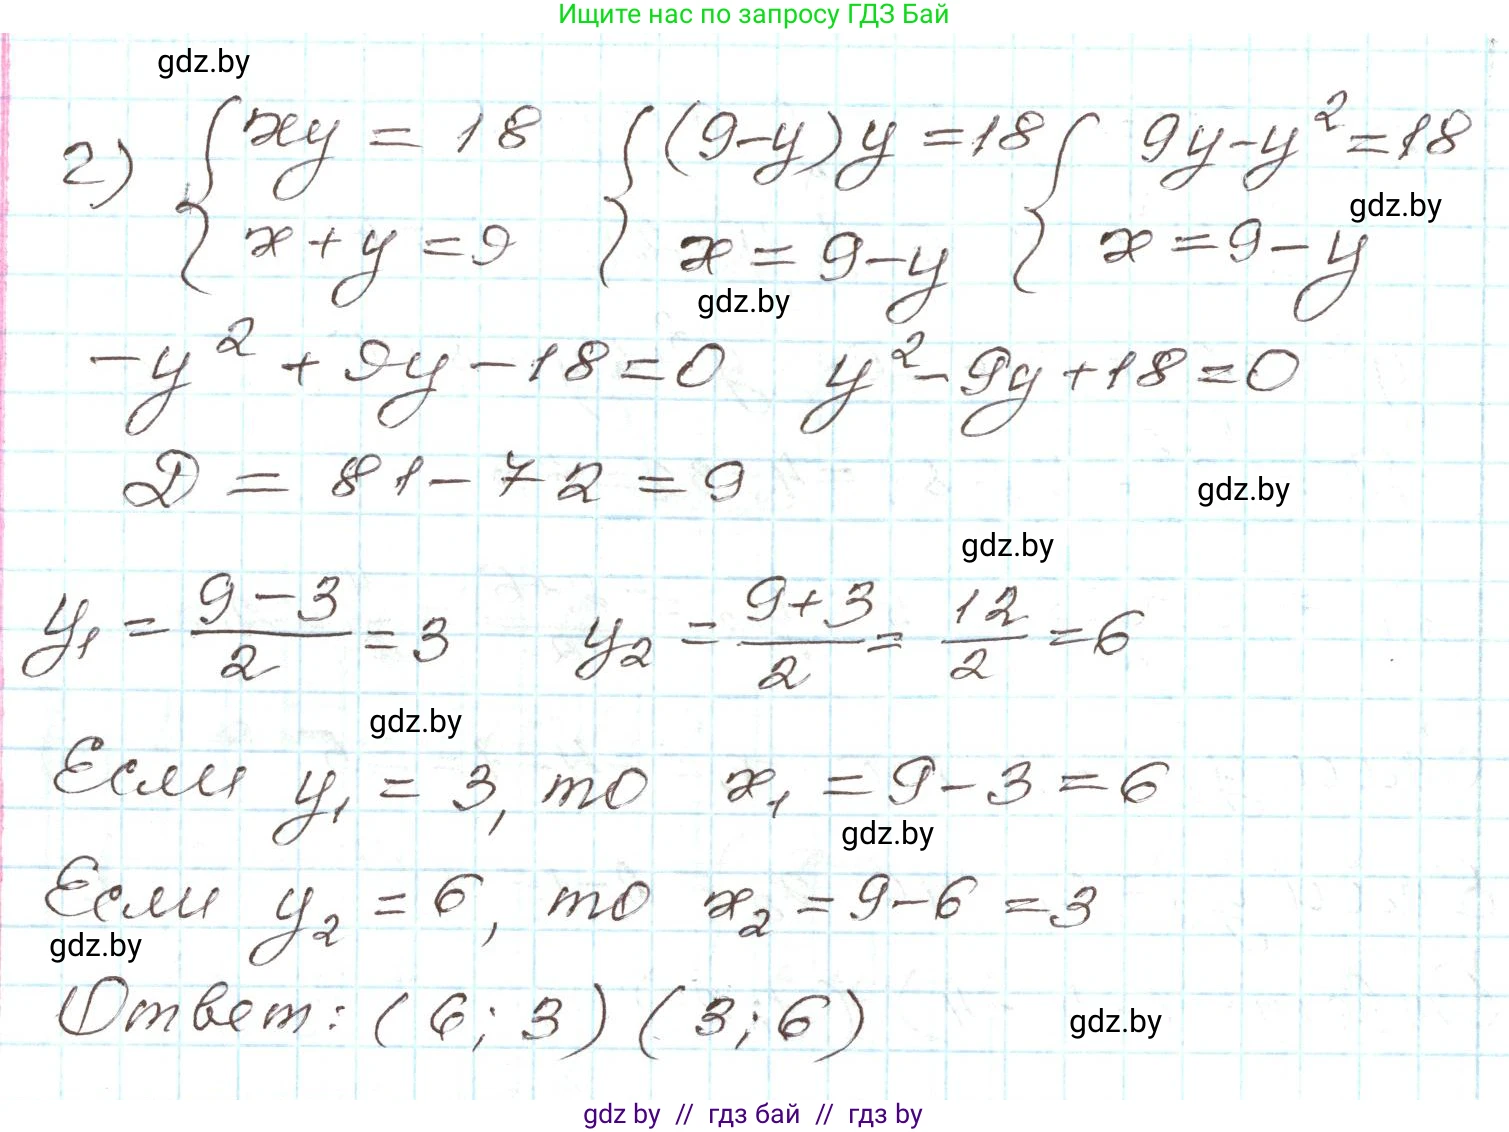 Ищите нас по запросу ГДЗ Бай
gdz.by
2) { xy = 18 { (9-y)y = 18 { 9y-y² = 18
gdz.by
x+y = 9 x = 9-y x = 9-y
gdz.by
-y² + 9y - 18 = 0 y² - 9y + 18 = 0
D = 81 - 72 = 9
gdz.by
gdz.by
y₁ = (9-3)/2 = 3 y₂ = (9+3)/2 = 12/2 = 6
gdz.by
Если y₁ = 3, то x₁ = 9 - 3 = 6
gdz.by
Если y₂ = 6, то x₂ = 9 - 6 = 3
gdz.by
Ответ: (6; 3) (3; 6)
gdz.by
gdz by // гдз бай // гдз by